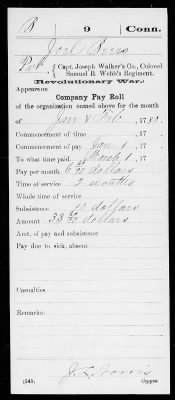 B 9 Conn.
Joel Beers
Pvt, Capt. Joseph Walker's Co., Colonel
Samuel B. Webb's Regiment.
Revolutionary War.
Appears on
Company Pay Roll
of the organization named above for the month
of Jan & Feb, 1780.
Commencement of time, 17 .
Commencement of pay, Jan 1, 17 .
To what time paid, March 1, 17 .
Pay per month 6 dollars
Time of service 2 months
Whole time of service
Subsistence 10 dollars
Amount 33 dollars
Amt. of pay and subsistence
Pay due to sick, absent
Casualties
Remarks:
J. L. Norris
(545) Copyist.